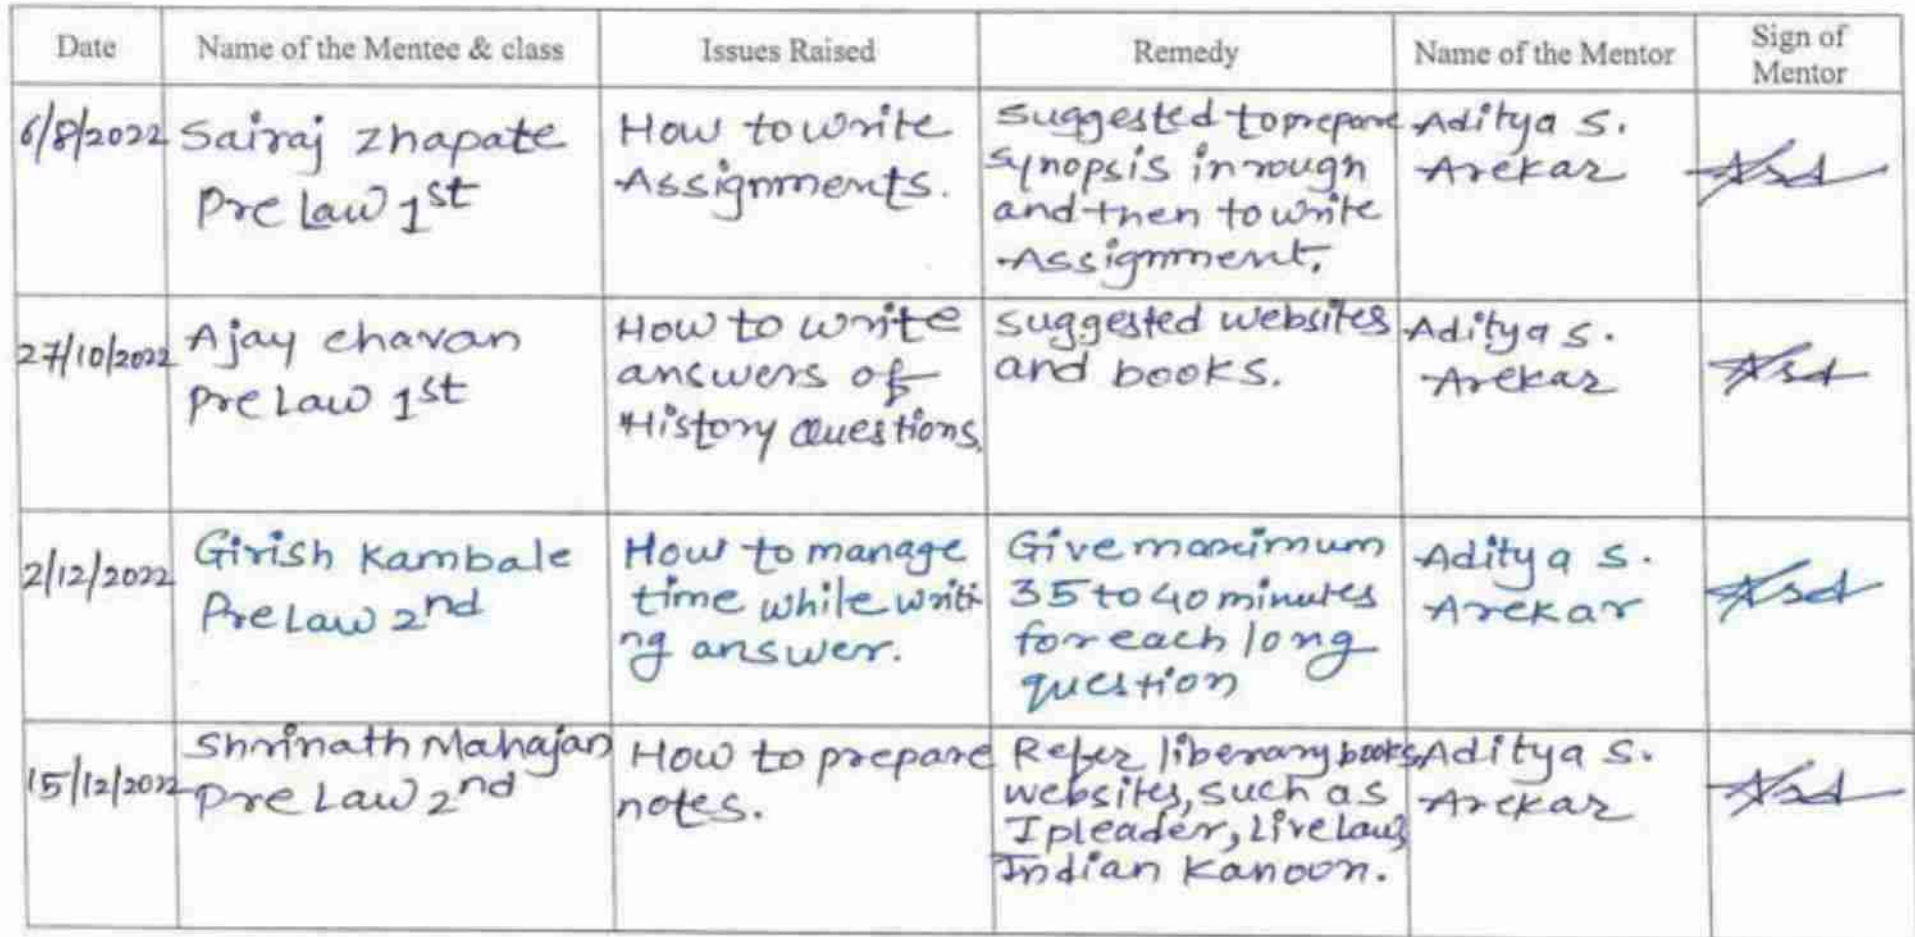 Date
Name of the Mentee & class
Issues Raised
Remedy
Name of the Mentor
Sign of
Mentor
6/8/2022
Sairaj Zhapate
Pre Law 1st
How to write
Assignments.
Suggested to prepare
synopsis in rough
and then to write
Assignment.
Aditya S.
Arekar
27/10/2022
Ajay Chavan
Pre Law 1st
How to write
answers of
History Questions.
Suggested websites
and books.
Aditya S.
Arekar
2/12/2022
Girish Kambale
Pre Law 2nd
How to manage
time while writi
ng answer.
Give maximum
35 to 40 minutes
for each long
question
Aditya S.
Arekar
15/12/2022
Shrinath Mahajan
Pre Law 2nd
How to prepare
notes.
Refer liberary books,
websites, such as
Ipleader, Live Law,
Indian Kanoon.
Aditya S.
Arekar